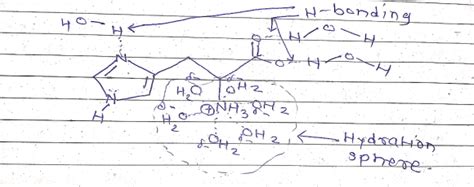 H-bonding
HO-H
O H-O-H
O- H-O-H
N
H2O OH2
N
H
⊕NH3 OH2
H2O
OH2 OH2
Hydration
sphere.